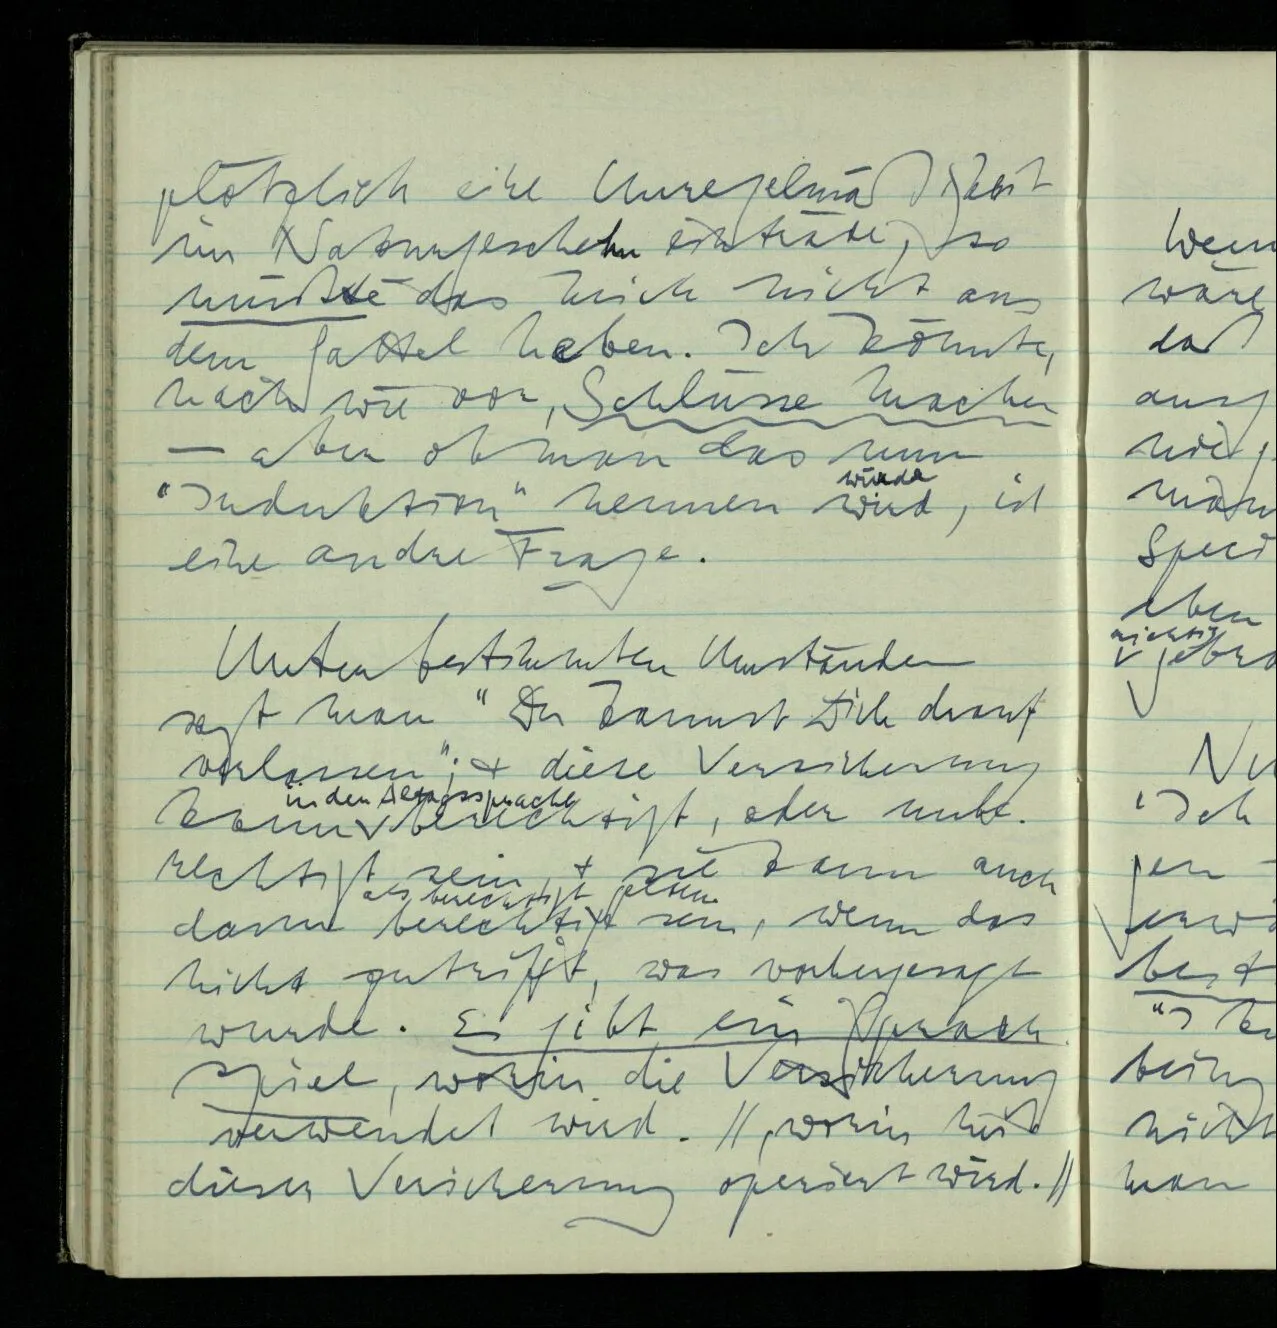 plötzlich eine Unregelmäßigkeit
im Naturgeschehn einträte, so
müßte das mich nicht aus
dem Sattel heben. Ich könnte,
nach wie vor, Schlüsse machen
— aber ob man das nun
würde
"Induktion" nennen wird, ist
eine andre Frage.
Unter bestimmten Umständen
sagt man "Du kannst Dich drauf
verlassen"; & diese Versicherung
in der Alltagssprache
kann berechtigt, oder unbe-
rechtigt sein, & sie kann auch
als berechtigt gelten
dann berechtigt sein, wenn das
nicht zutrifft, was vorhergesagt
wurde. Es gibt ein Sprach-
spiel, worin die Versicherung
verwendet wird. //, worin mit
dieser Versicherung operiert wird.//
Wenn
wäre
daß
ausg
man
eben
nichts
"Ich
gen
best
nicht
man